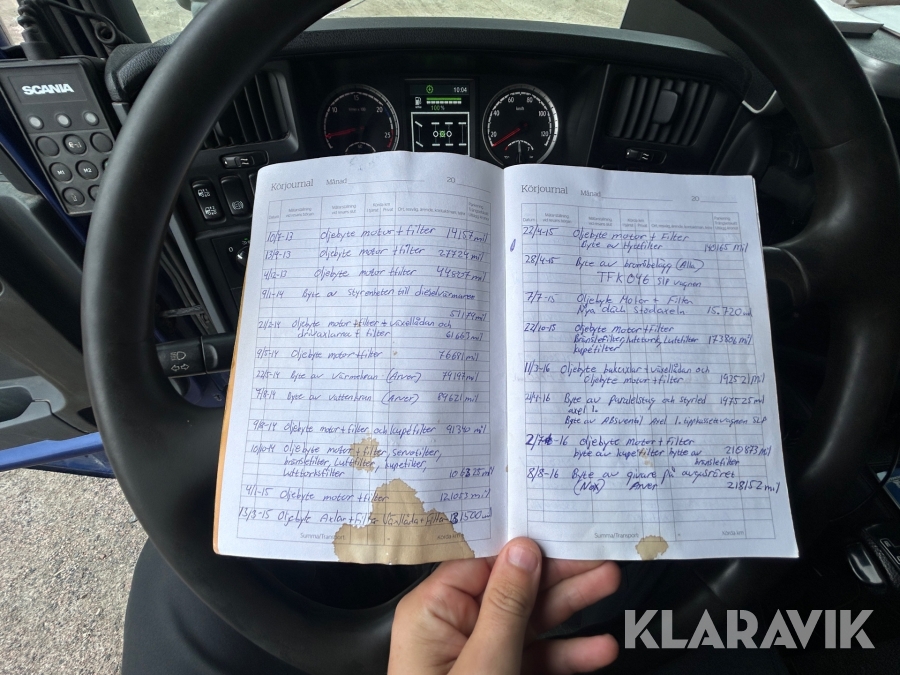 SCANIA
M1
M2
10:04
100 %
Körjournal Månad 20
Datum
10/7-13 Oljebyte motor + filter 14157 mil
13/9-13 Oljebyte motor + filter 27724 mil
4/12-13 Oljebyte motor + filter 44807 mil
9/1-14 Byte av styrenheten till dieselvärmaren
51179 mil
21/2-14 Oljebyte motor + filter + växellådan och
drivaxlarna + filter 61663 mil
9/5-14 Oljebyte motor + filter 76681 mil
22/5-14 Byte av Värmekran (Arver) 79197 mil
Byte av vattenkran (Arver) 89621 mil
Oljebyte motor + filter och kupefilter 91340 mil
Oljebyte motor + filter, servofilter,
bränslefilter, Luftfilter, kupefilter,
lufttorksfilter
4/1-15 Oljebyte motor + filter 121073 mil
13/3-15 Oljebyte Axlar + Filter Växllåda + Filter 131500 mil
Summa/Transport Körda km
Körjournal Månad 20
Datum
22/4-15 Oljebyte motor + Filter
Byte av Hyttfilter 140165 mil
28/4-15 Byte av bromsbelägg (Alla)
TFK 046 SLP vagnen
7/7-15 Oljebyte Motor + Filter
Nya däck stödaxeln 15.720 mil
22/10-15 Oljebyte motor + filter
Bränslefilter, lufttork, Luftfilter 173806 mil
kupéfilter
11/3-16 Oljebyte bakaxlar + växellådan och
Oljebyte motor + filter 192521 mil
Byte av Parallelstag och styrled 197525 mil
axel 1.
Byte av ABSventil Axel 1. SLP
Oljebyte motor + filter
byte av kupefilter byte av 210873 mil
bränslefilter
8/8-16 Byte av givare på avgasröret
(Nox) Arver 218152 mil
Summa/Transport Körda km
KLARAVIK